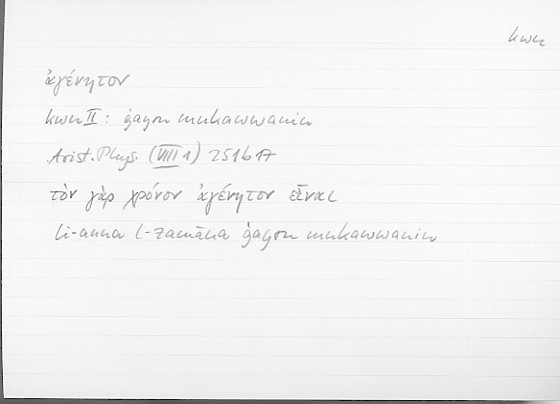 kwn
ἀγένητον
kwn II: ġayru mukawwanin
Arist. Phys. (VIII 1) 251b17
τὸν γὰρ χρόνον ἀγένητον εἶναι
li-anna l-zamāna ġayru mukawwanin